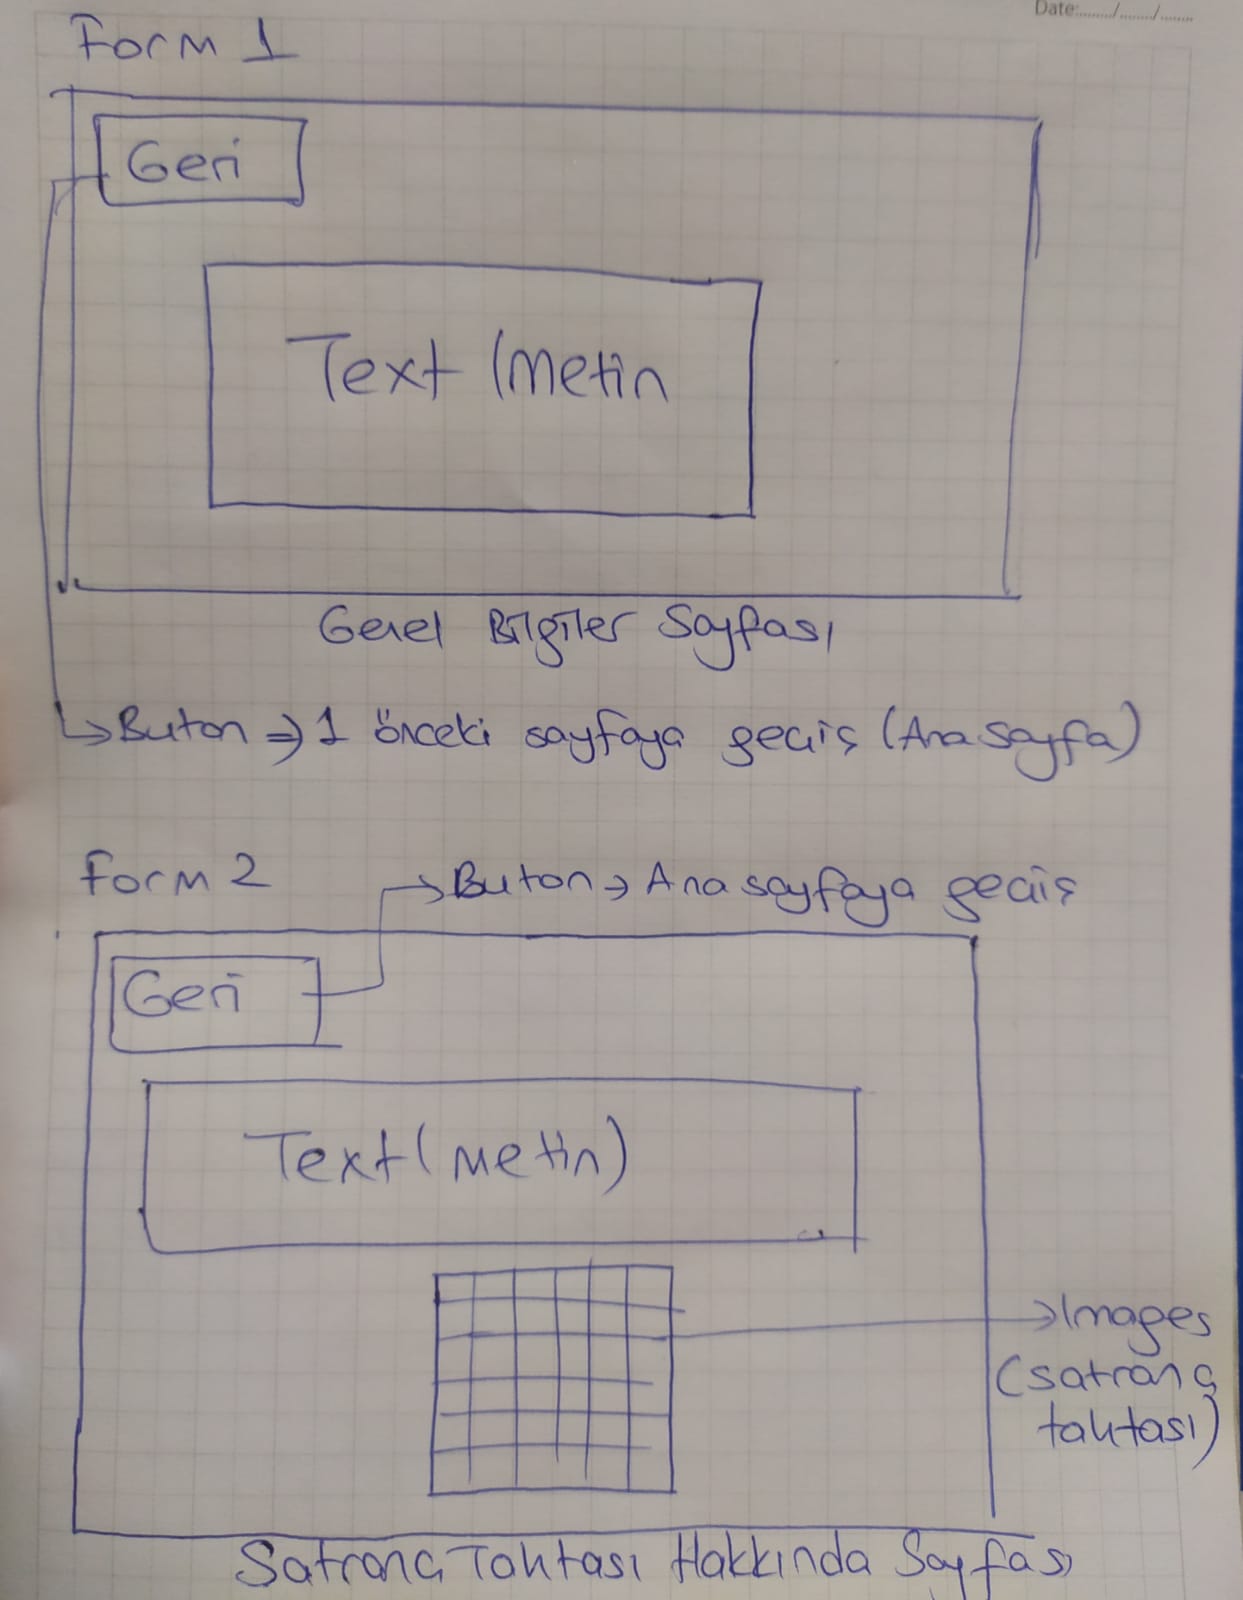 Date:......../......../........
Form 1
Geri
Text (Metin
Genel Bilgiler Sayfası
Buton ⇒ 1 önceki sayfaya geçiş (Ana Sayfa)
Form 2
Buton → Ana sayfaya geçiş
Geri
Text (Metin)
Images
(satranç
tahtası)
Satranç Tahtası Hakkında Sayfası